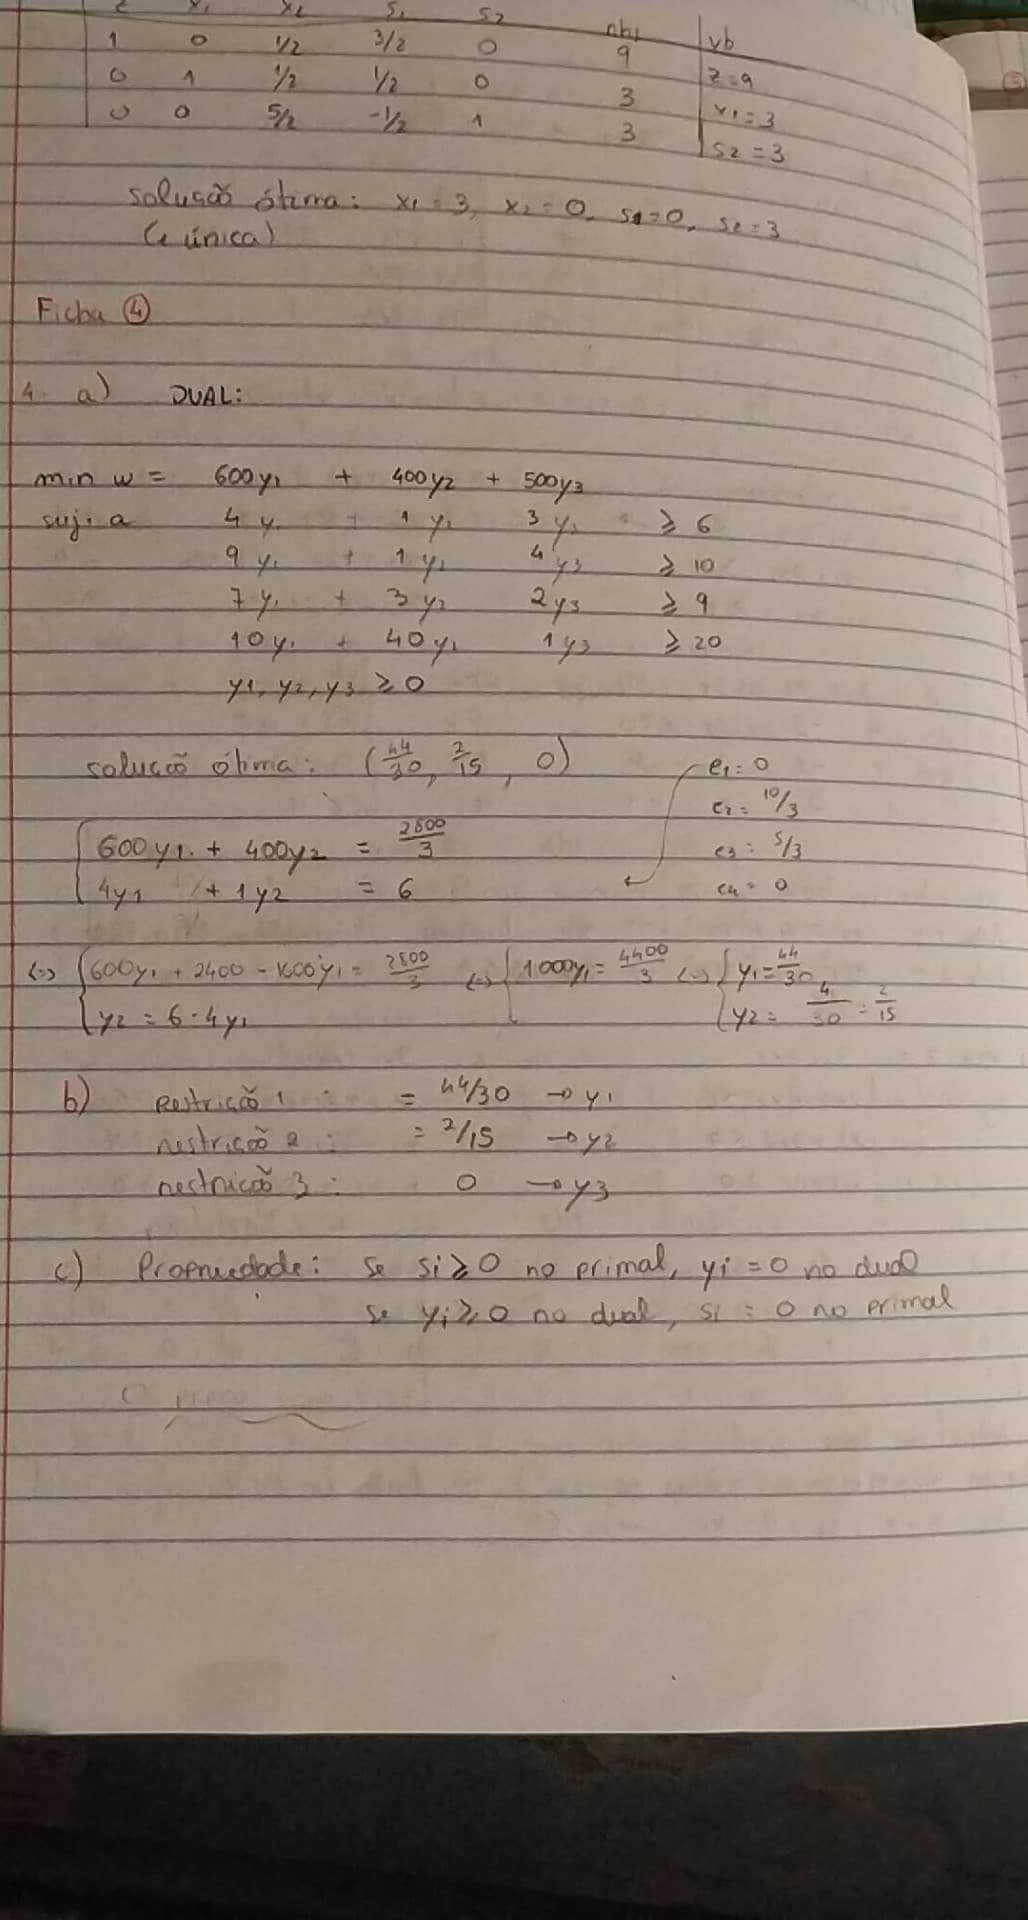 z x₁ x₂ s₁ s₂ vb
1 0 1/2 3/2 0 9 z=9
0 1 1/2 1/2 0 3 x₁=3
0 0 5/2 -1/2 1 3 s2=3
solução ótima: x₁=3, x₂=0, s1=0, s₂=3
(e única)
Ficha ④
4. a) DUAL:
min w = 600y₁ + 400y₂ + 500y₃
suj. a 4 y₁ + 1 y₂ 3 y₃ ≥ 6
9 y₁ + 1 y₂ 4 y₃ ≥ 10
7 y₁ + 3 y₂ 2y₃ ≥ 9
10 y₁ + 40 y₂ 1 y₃ ≥ 20
y1, y2, y3 ≥ 0
solução ótima: (44/30, 2/15, 0) e₁=0
e₂= 10/3
600y1 + 400y2 = 2800/3 e3= 5/3
4y1 + 1y2 = 6 e4= 0
(=) { 600y₁ + 2400 - 1600y₁ = 2800/3 (=) { 1000y₁ = 4400/3 (=) { y₁ = 44/30
y2 = 6-4y₁ y2 = 4/30 = 2/15
b) Restrição 1 : = 44/30 → y₁
restrição 2 : = 2/15 → y2
restrição 3 : 0 → y3
c) Propriedade: se si≥0 no primal, yi=0 no dual
se yi≥0 no dual, si = 0 no primal